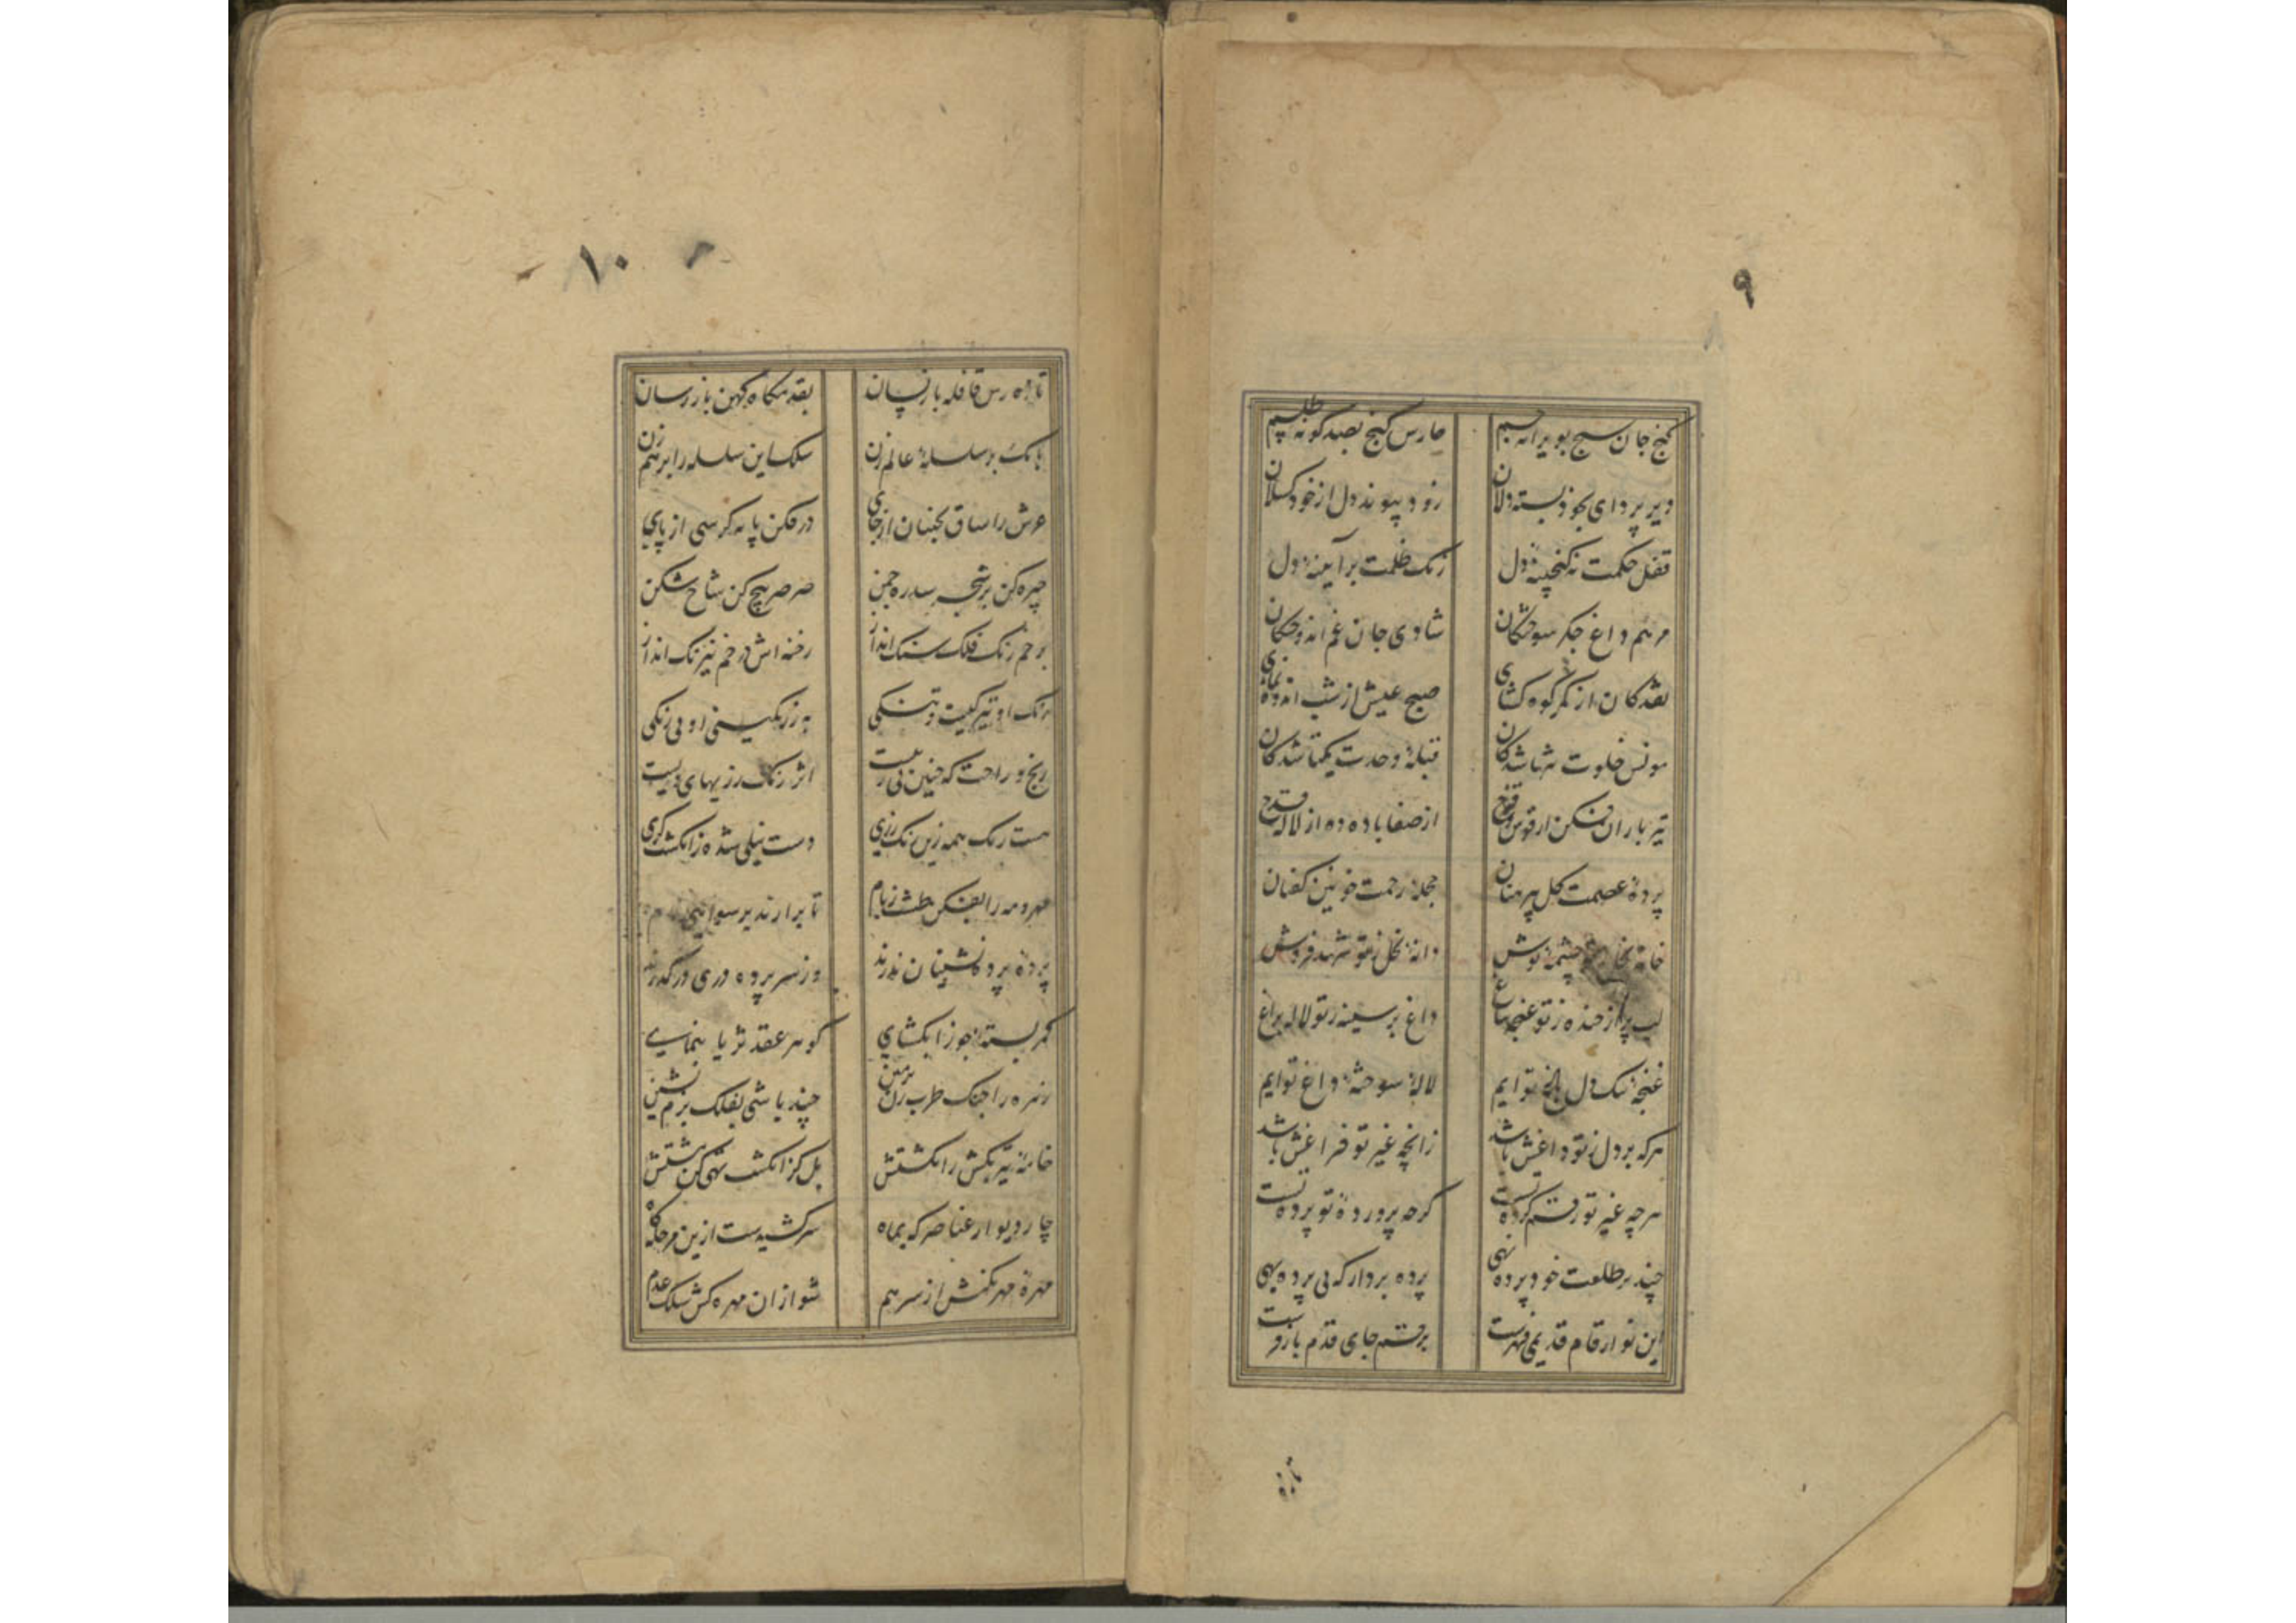 ۹
گنج جان سنج بویرانه جسم حارس گنج بصد گونه طلسم
دیر پروای بخود بسته دلان زود پیوند دل از خود کسلان
قفل حکمت نه گنجینه دل زنک ظلمت بر آیینه دل
مرهم داغ جکر سوختکان شادی جان غم اندوختکان
نقد کان از کمر کوه کشای صبح عیش از شب اندوه نمای
مونس خلوت تنها شدکان قبله وحدت یکتا شدکان
تیر باران فکن از قوس قزح از صفا باده ده از لاله قدح
پرده عصمت کل پیرهنان حجله رحمت خونین کفنان
خانه نحل ز تو چشمه نوش دانه نخل ز تو شهد فروش
لب پر از خنده ز تو غنچه بباغ داغ بر سینه ز تو لاله براغ
غنچه تنک دل باغ توایم لاله سوخته داغ توایم
هر که بر دل ز تو داغش باشد زانچه غیر تو فراغش باشد
هر چه غیر تو رقم کرده تست کرچه پرورده تو پرده تست
چند بر طلعت خود پرده نهی پرده بردار که بی پرده بهی
این نو ارقام قدیمی فهرست بر قدم جای قدم بازو
تازه
۱۰
تازه رس قافله باز پسان بقدمکاه کهن باز رسان
بانک بر سلسله عالم زن سلک این سلسله را بر هم زن
عرش را ساق بجنبان از جای در فکن پایه کرسی از پای
چیره کن بر شجر سدره چمن صرصر هیچ کن شاخ شکن
بر خم رنک فلک سنک انداز رخنه اش در خم نیرنک انداز
رنک او تیرکیست و تنکی به ز رنکینی او بی رنکی
رنج و راحت که چنین پی در پیست اثر رنک رزیهای ویست
هست رنک همه زین رنک رزی دست نیلی شده ز انکشت کزی
مهر و مه را بفکن طشت ز بام تا برارند برسوایی نام
پرده پرده نشینان ندرند وز سر پرده دری در کذرند
کمر بسته جوزا بکشای کوهر عقد ثریا بنمای
زهره را چنک طرب زن بزمین چند باشی بفلک بزم نشین
خامه تیر بکش ز انکشتش بل کز انکشت تهی کن مشتش
چار دیوار عناصر که بماه سر کشیدست ازین مرحله کاه
مهره مهره بکنش از سر هم شو از ان مهره کش سلک عدم